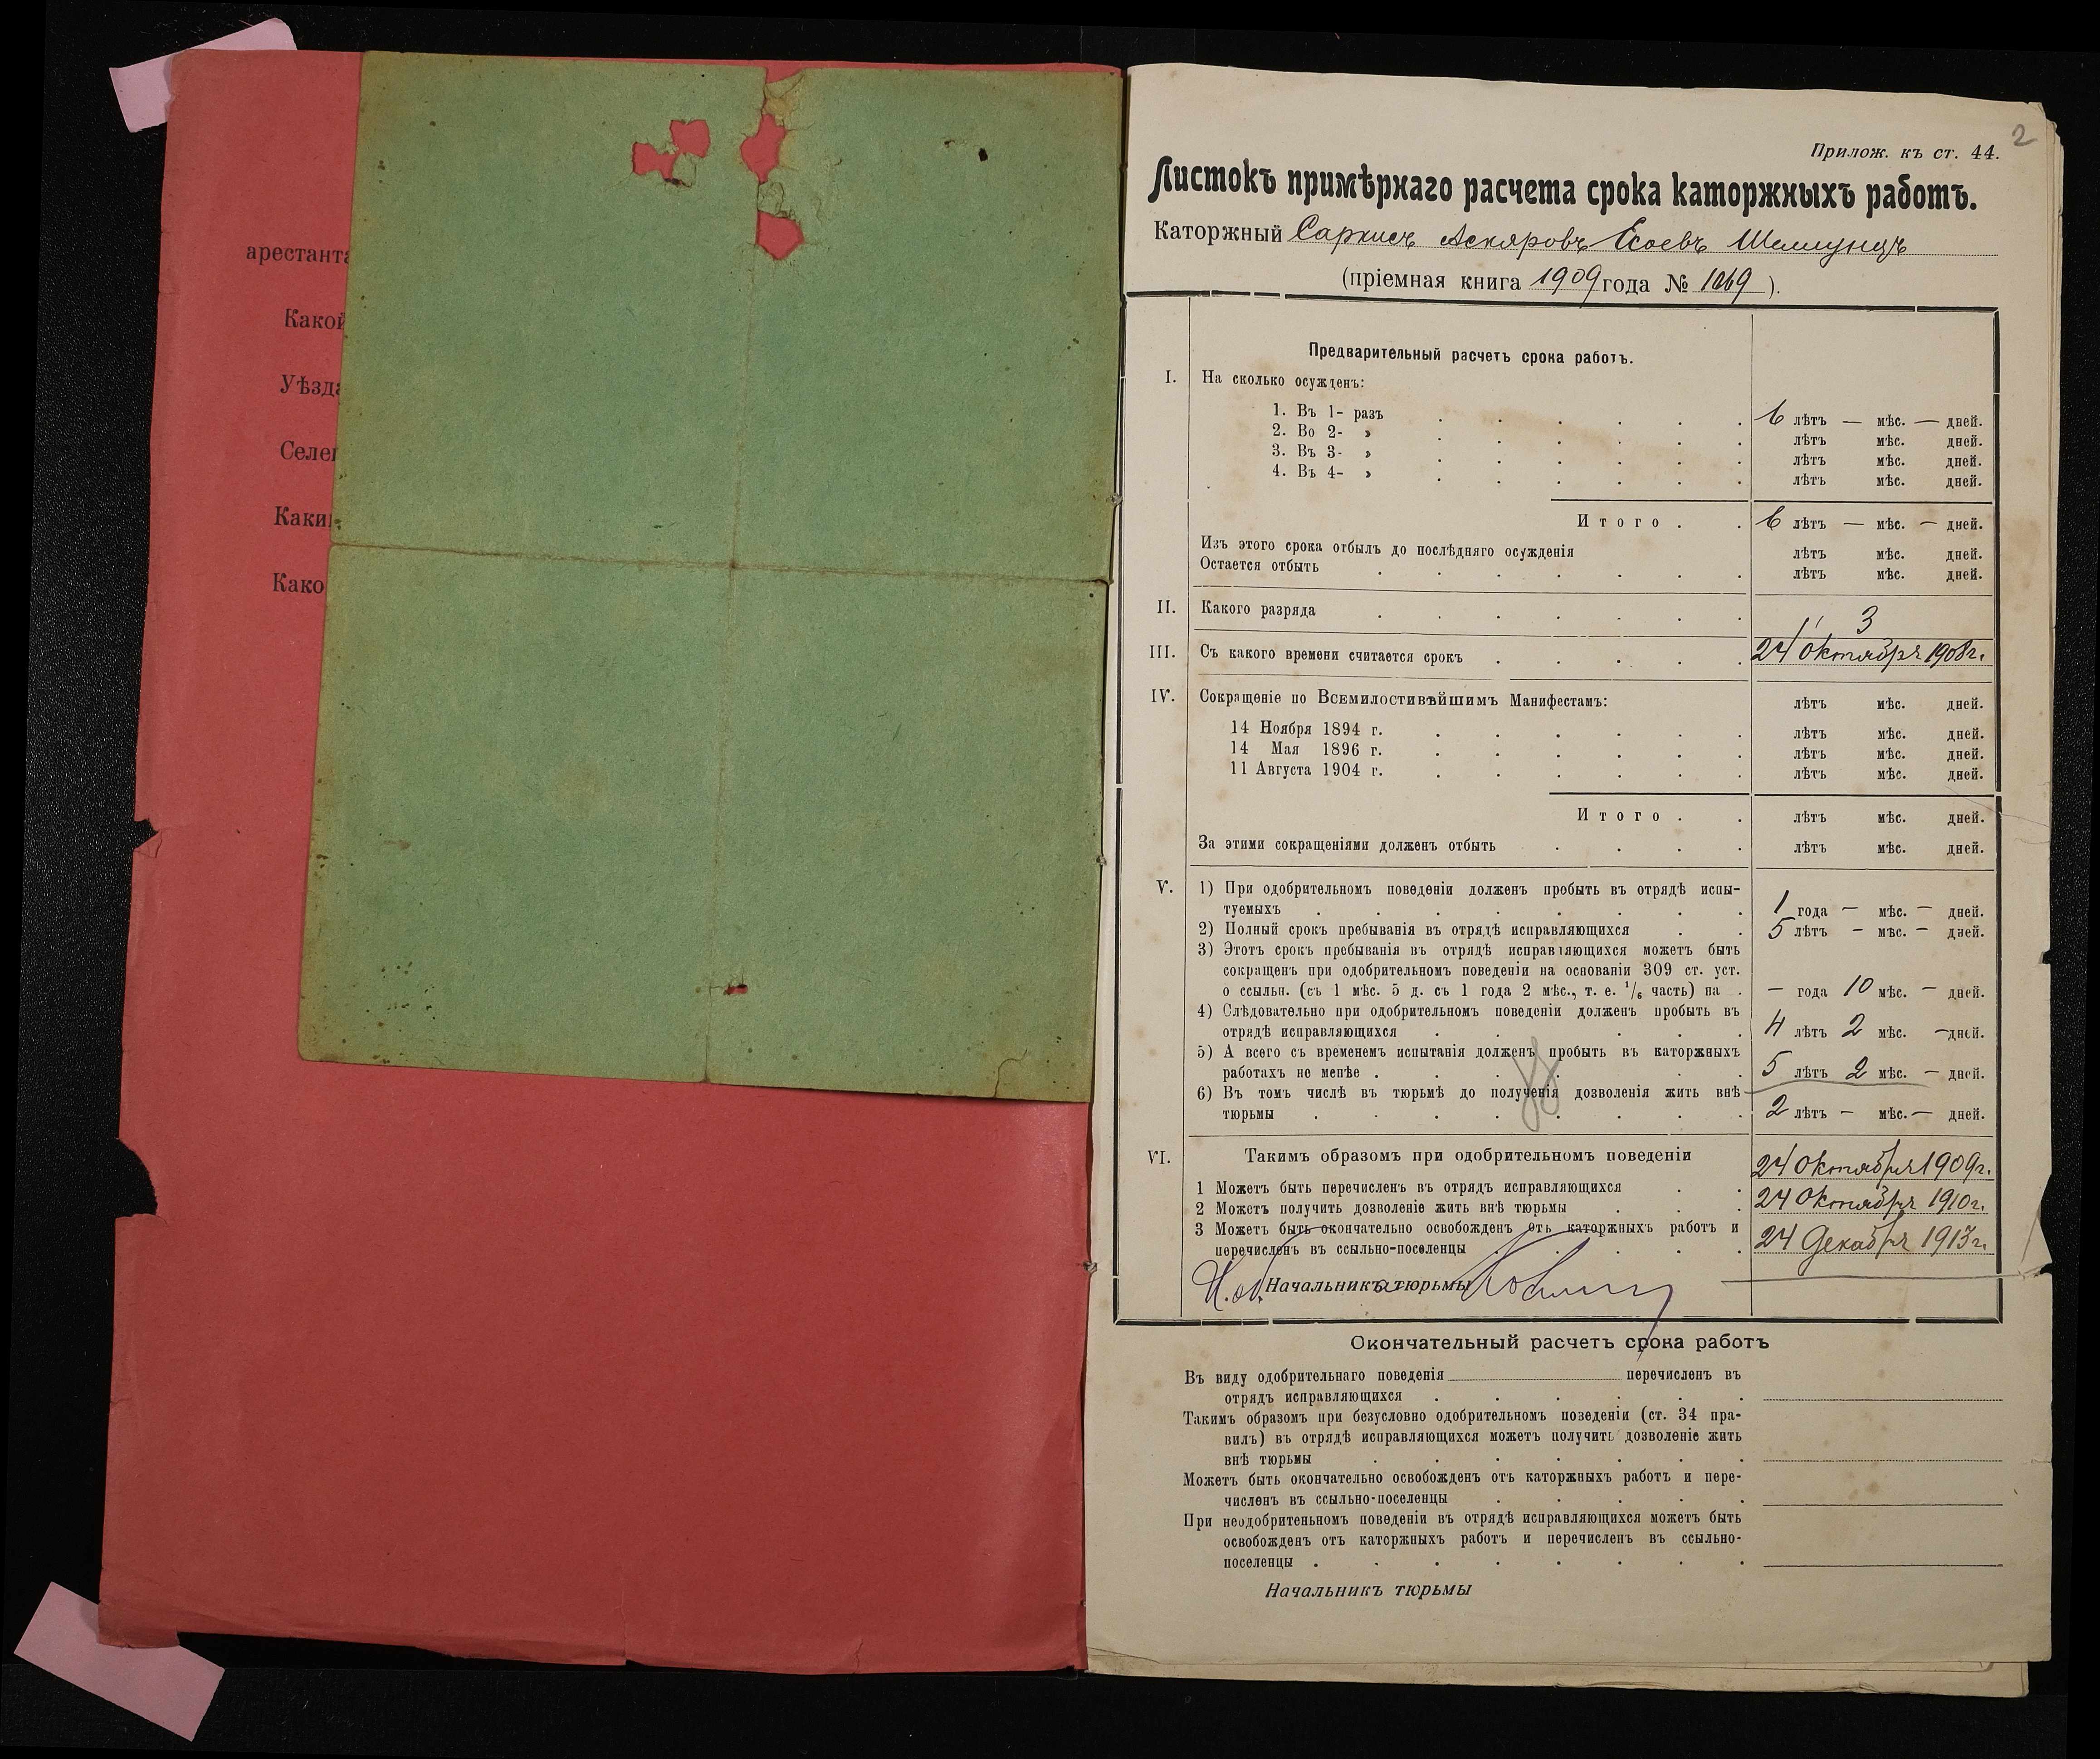 арестанта
Какой
Уѣзда
Селен
Каким
Како
2
Прилож. къ ст. 44.
Листокъ примѣрнаго расчета срока каторжныхъ работъ.
Каторжный Саркисъ Аскяровъ Есоевъ
(пріемная книга 1909 года № 1069 ).
Предварительный расчетъ срока работъ.
I. На сколько осужденъ:
1. Въ 1- разъ 6 лѣтъ — мѣс. — дней.
2. Во 2- » лѣтъ мѣс. дней.
3. Въ 3- » лѣтъ мѣс. дней.
4. Въ 4- » лѣтъ мѣс. дней.
Итого . . 6 лѣтъ — мѣс. — дней.
Изъ этого срока отбылъ до послѣдняго осужденія лѣтъ мѣс. дней.
Остается отбыть лѣтъ мѣс. дней.
II. Какого разряда 3
III. Съ какого времени считается срокъ 24 Октября 1908 г.
IV. Сокращеніе по Всемилостивѣйшимъ Манифестамъ: лѣтъ мѣс. дней.
14 Ноября 1894 г. лѣтъ мѣс. дней.
14 Мая 1896 г. лѣтъ мѣс. дней.
11 Августа 1904 г. лѣтъ мѣс. дней.
Итого . . лѣтъ мѣс. дней.
За этими сокращеніями долженъ отбыть лѣтъ мѣс. дней.
V. 1) При одобрительномъ поведеніи долженъ пробыть въ отрядѣ испы-
туемыхъ 1 года — мѣс. — дней.
2) Полный срокъ пребыванія въ отрядѣ исправляющихся 5 лѣтъ — мѣс. — дней.
3) Этотъ срокъ пребыванія въ отрядѣ исправляющихся можетъ быть
сокращенъ при одобрительномъ поведеніи на основаніи 309 ст. уст.
о ссыльн. (съ 1 мѣс. 5 д. съ 1 года 2 мѣс., т. е. 1/6 часть) на . — года 10 мѣс. — дней.
4) Слѣдовательно при одобрительномъ поведеніи долженъ пробыть въ
отрядѣ исправляющихся 4 лѣтъ 2 мѣс. — дней.
5) А всего съ временемъ испытанія долженъ пробыть въ каторжныхъ
работахъ не менѣе . 5 лѣтъ 2 мѣс. — дней.
6) Въ томъ числѣ въ тюрьмѣ до полученія дозволенія жить внѣ
тюрьмы 2 лѣтъ — мѣс. — дней.
VI. Такимъ образомъ при одобрительномъ поведеніи
1 Можетъ быть перечисленъ въ отрядъ исправляющихся 24 Октября 1909 г.
2 Можетъ получить дозволеніе жить внѣ тюрьмы 24 Октября 1910 г.
3 Можетъ быть окончательно освобожденъ отъ каторжныхъ работъ и
перечисленъ въ ссыльно-поселенцы 24 Декабря 1913 г.
И. об. Начальника тюрьмы
Окончательный расчетъ срока работъ
Въ виду одобрительнаго поведенія перечисленъ въ
отрядъ исправляющихся
Такимъ образомъ при безусловно одобрительномъ поведеніи (ст. 34 пра-
вилъ) въ отрядѣ исправляющихся можетъ получить дозволеніе жить
внѣ тюрьмы
Можетъ быть окончательно освобожденъ отъ каторжныхъ работъ и пере-
численъ въ ссыльно-поселенцы
При неодобрительномъ поведеніи въ отрядѣ исправляющихся можетъ быть
освобожденъ отъ каторжныхъ работъ и перечисленъ въ ссыльно-
поселенцы .
Начальникъ тюрьмы